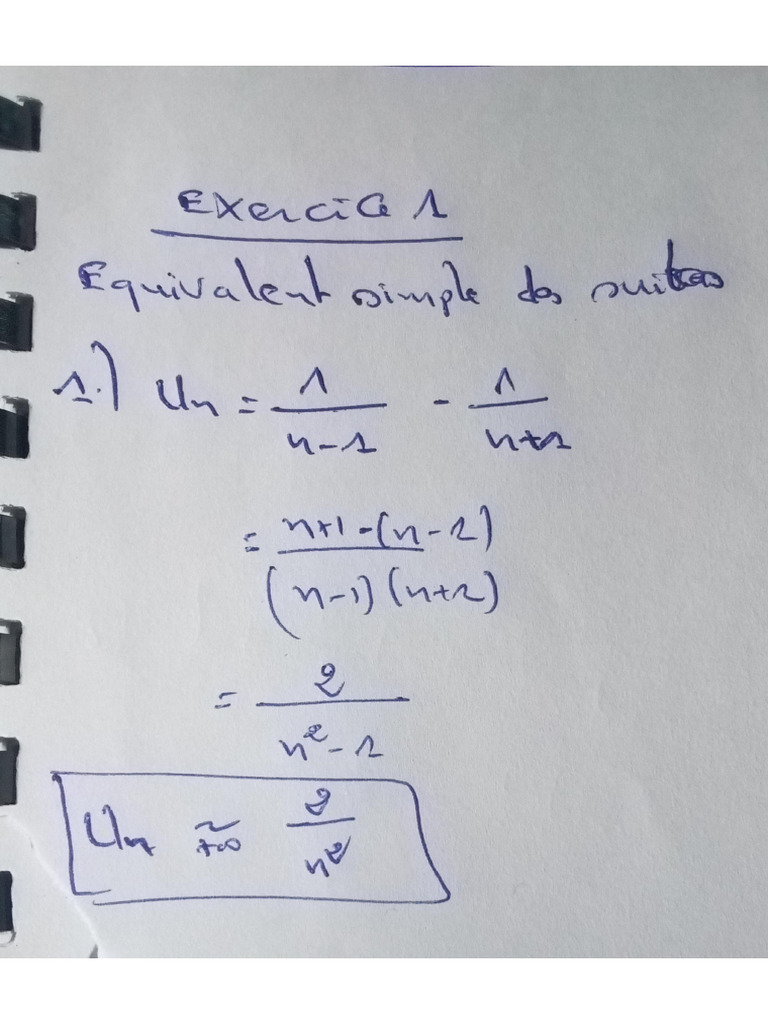 Exercice 1
Equivalent simple des suites
1.) Un = 1/(n-1) - 1/(n+1)
= (n+1-(n-1))/((n-1)(n+1))
= 2/(n²-1)
Un ~ +∞ 2/n²